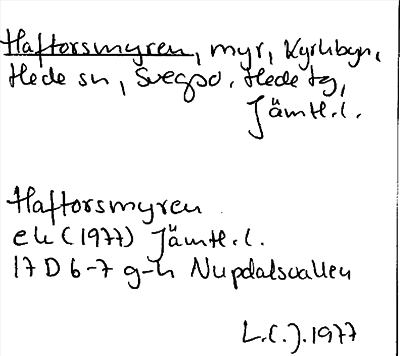 Haftorsmyren, myr, Kyrkbyn,
Hede sn, Svegsd. Hede tg,
Jämtl.l.
Haftorsmyren
ek (1977) Jämtl.l.
17 D 6-7 g-h Nupdalsvallen
L.C.J. 1977